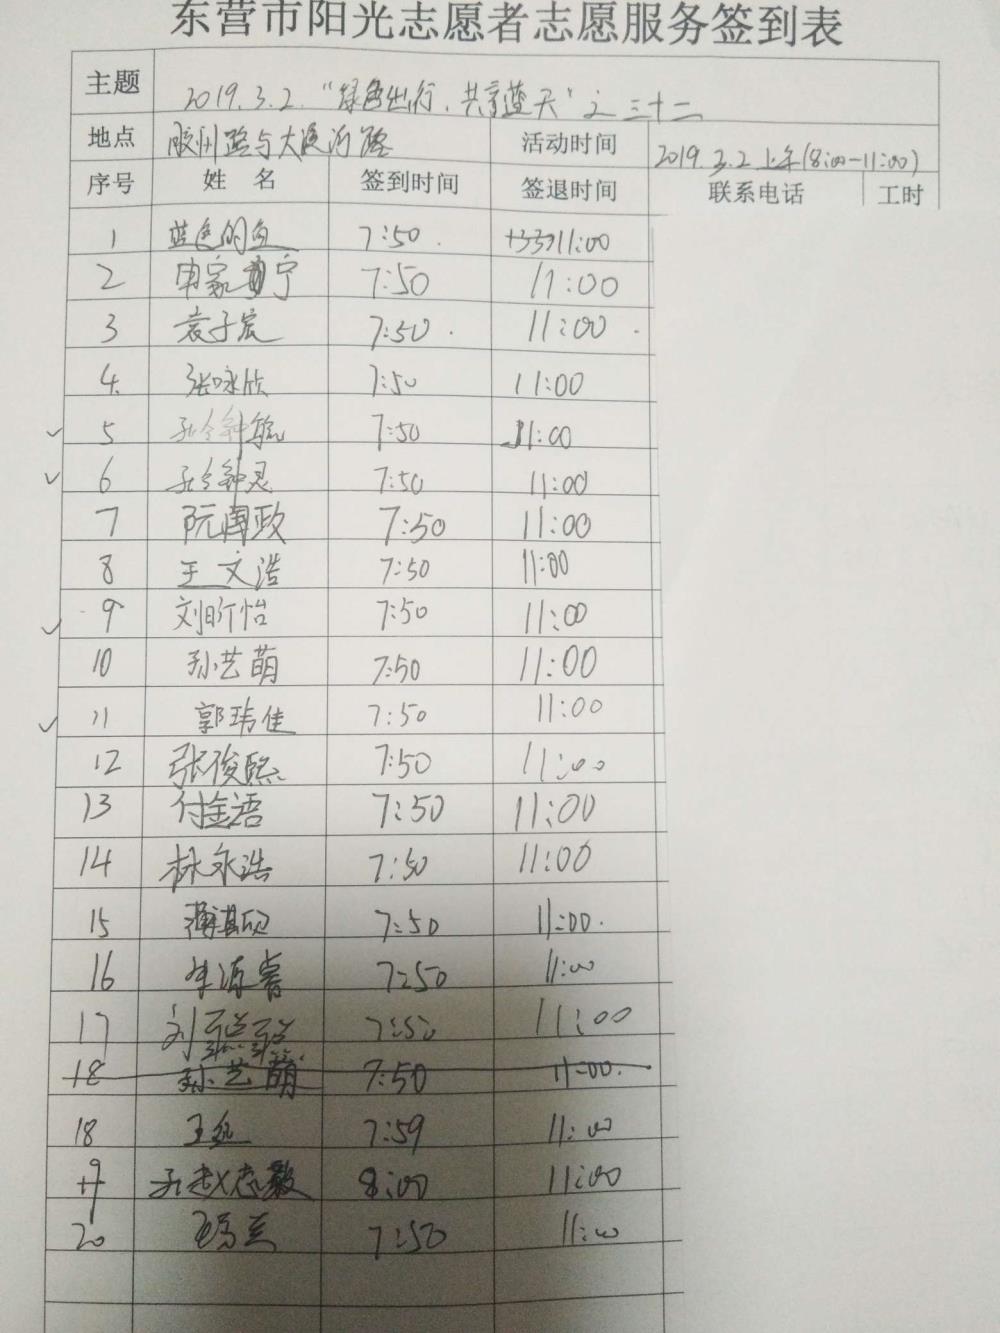 东营市阳光志愿者志愿服务签到表
主题 2019.3.2.“绿色出行.共享蓝天”之三十二
地点 胶州路与大渡河路 活动时间 2019.3.2上午(8:00-11:00)
序号 姓名 签到时间 签退时间 联系电话 工时
1 蓝色的鱼 7:50. 11:00
2 申家宁 7:50 11:00
3 袁子宸 7:50. 11:00.
4. 张咏欣 7:50 11:00
✓ 5 孔令钟毓 7:50 11:00
✓ 6 孔令钟灵 7:50 11:00
7 阮博政 7:50 11:00
8 王文浩 7:50 11:00
✓ 9 刘昕怡 7:50 11:00
10 孙艺萌 7:50 11:00
✓ 11 郭玮佳 7:50 11:00
12 张俊熙 7:50 11:00
13 付金语 7:50 11:00
14 林永浩 7:50 11:00
15 7:50 11:00.
16 7:50 11:00
17 刘 7:50 11:00
18 孙艺萌 7:50 11:00.
18 王 7:59 11:00
19 孔赵志毅 8:00 11:00
20 7:50 11:00